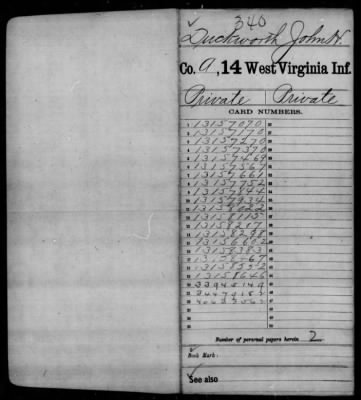 340
Duckworth, John H.
Co. A, 14 West Virginia Inf.
Private Private
CARD NUMBERS.
1 13157070
2 13157170
3 13157270
4 13157370
5 13157469
6 13157567
7 13157661
8 13157752
9 13157844
10 13157934
11 13158022
12 13158115
13 13158207
14 13158298
15 13156602
16 13158383
17
18
19 13158646
20 33945149
21
22
Number of personal papers herein 2
Book Mark:
See also